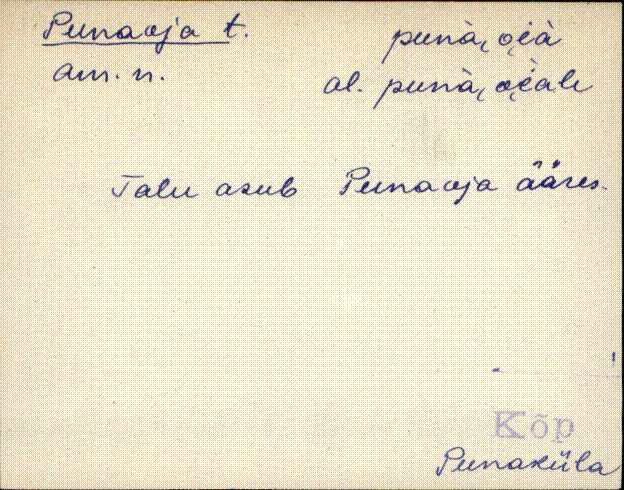 Punaoja t. punà, o̯i̯à
am. n. al. punà, o̯i̯ale
Talu asub Punaoja ääres.
Kõp
Punaküla